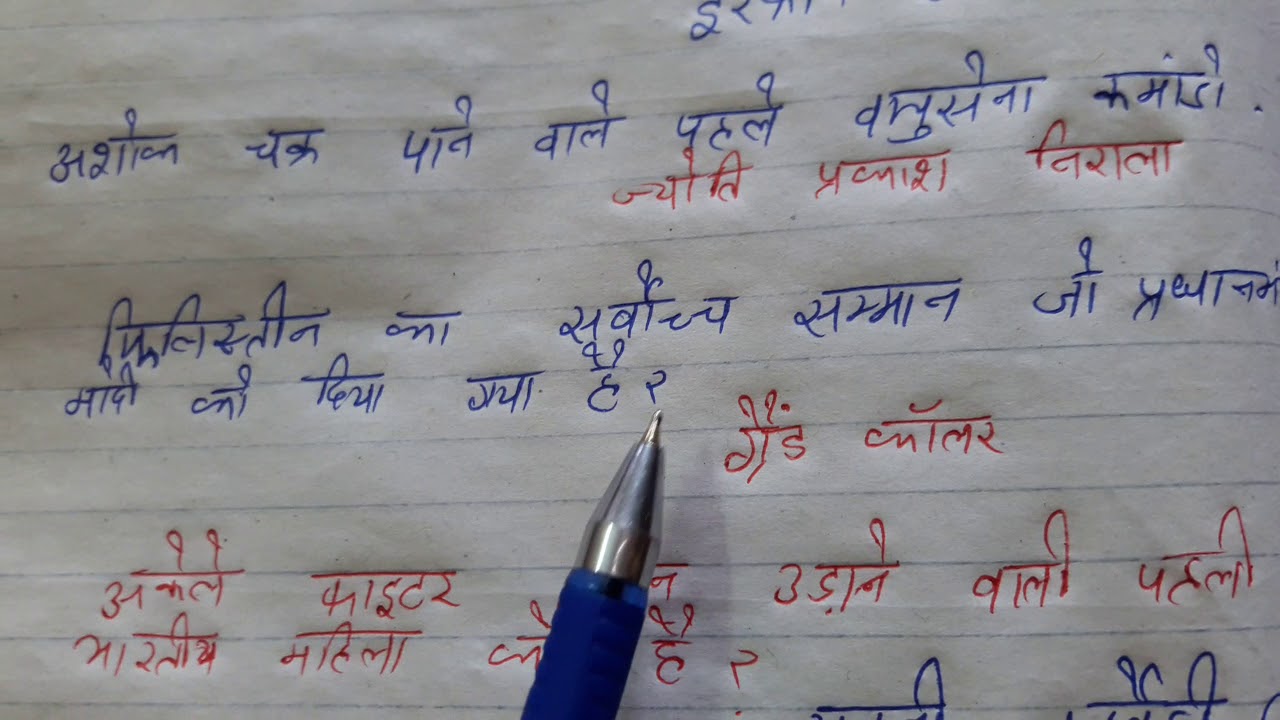 अशोक चक्र पाने वाले पहले वायुसेना कमांडो.
ज्योति प्रकाश निराला
फिलिस्तीन का सर्वोच्च सम्मान जो प्रधानमं
मोदी को दिया गया है?
ग्रैंड कॉलर
अकेले फाइटर न उड़ाने वाली पहली
भारतीय महिला है?